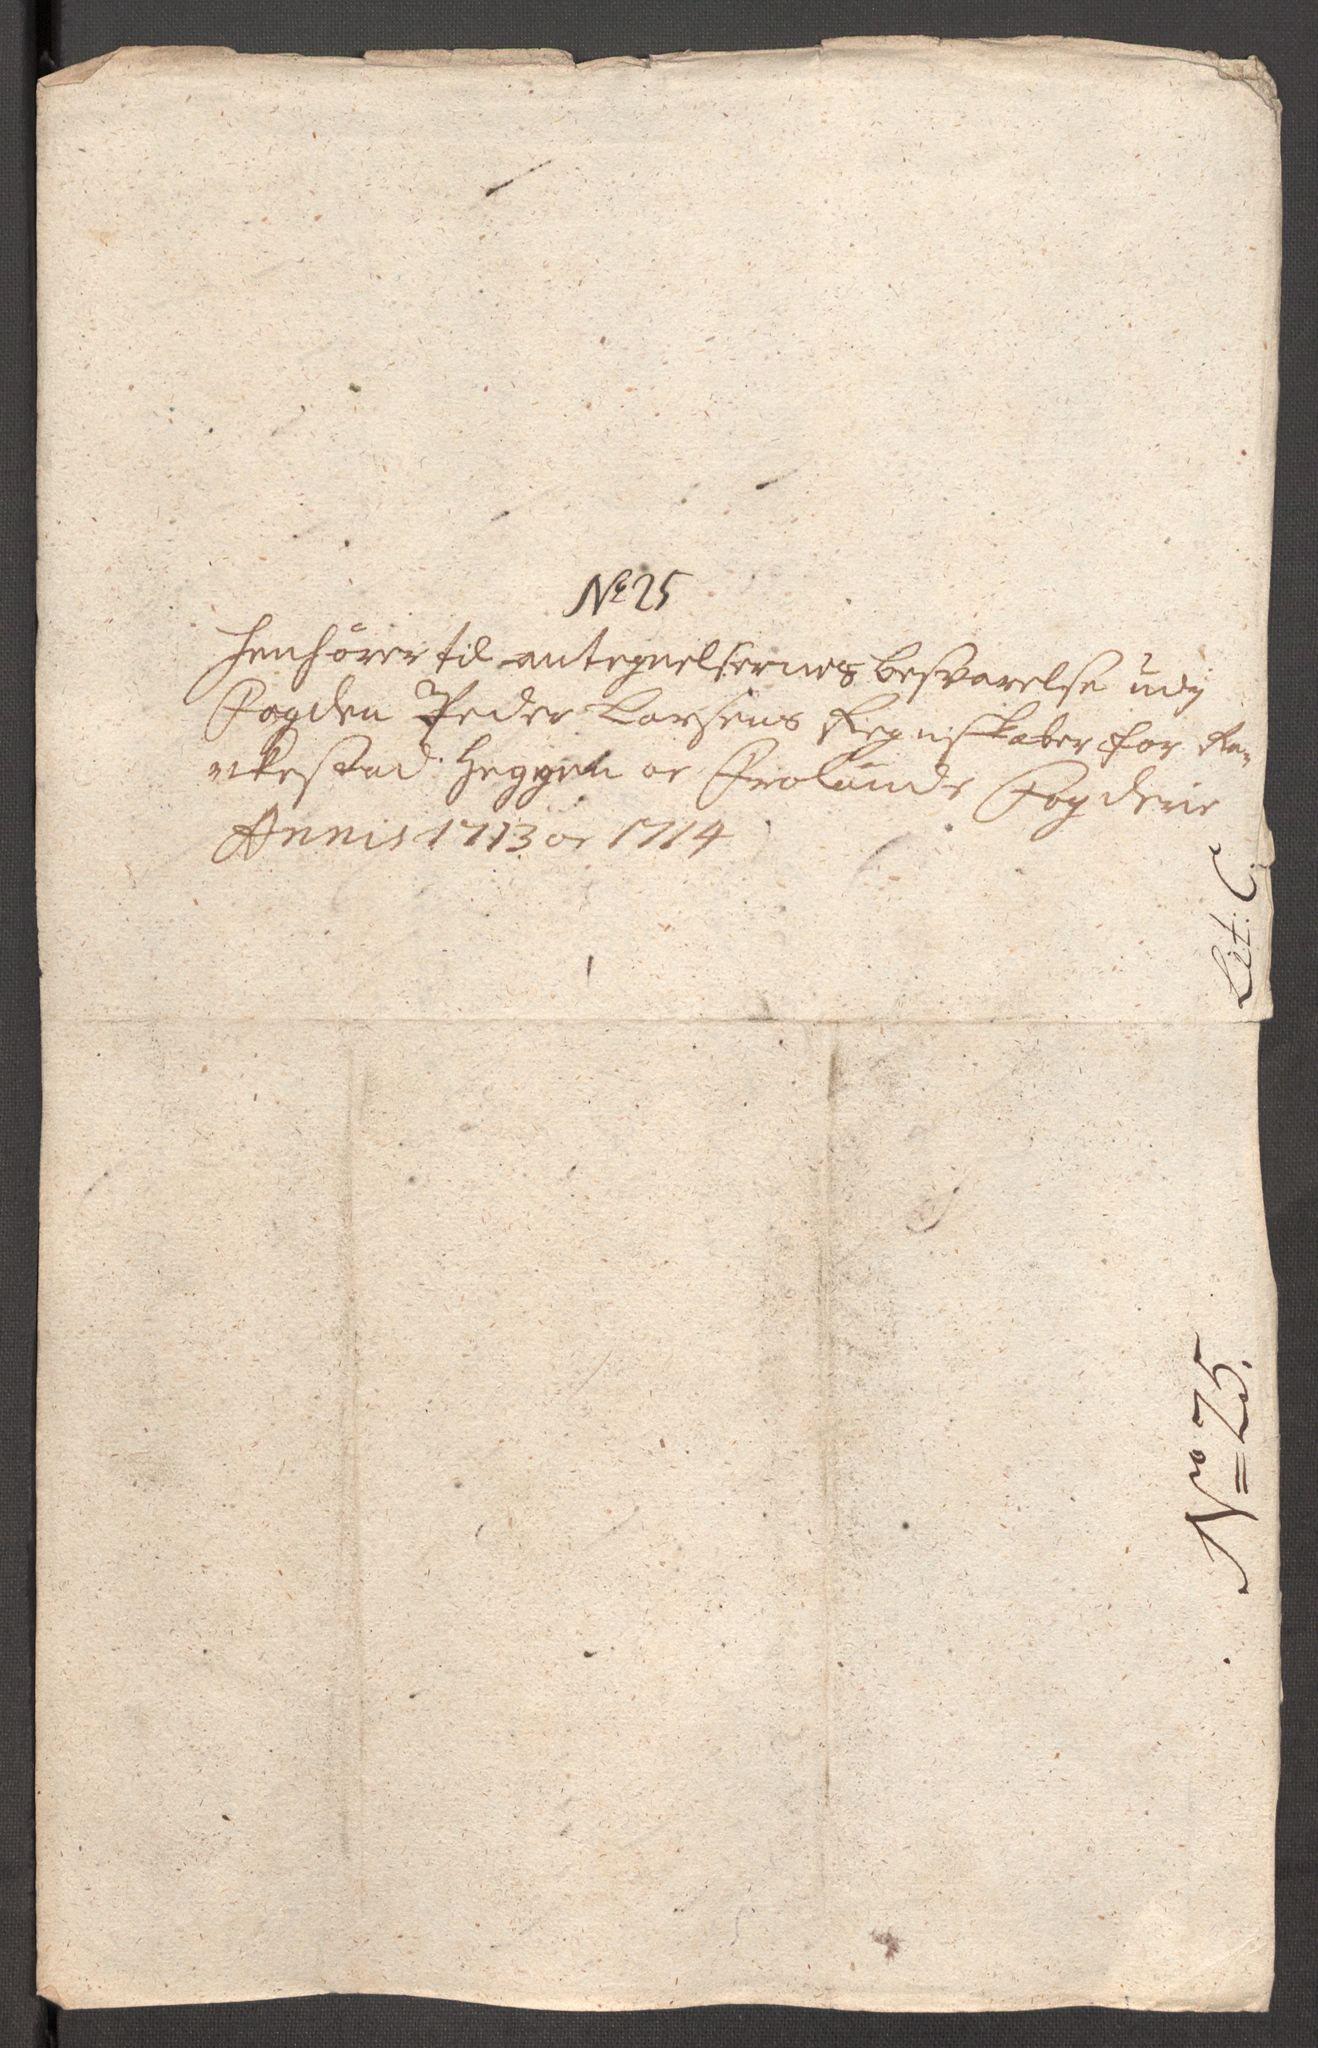 No 25
Henhörer til antegnelsernes besvarelse udj
Fogden Peder Larsens Regnskaber for Ra-
akestad Heggen oc Frölands Fogderie
Annis 1713 oc 1714
Lit: C.
Nro 25.